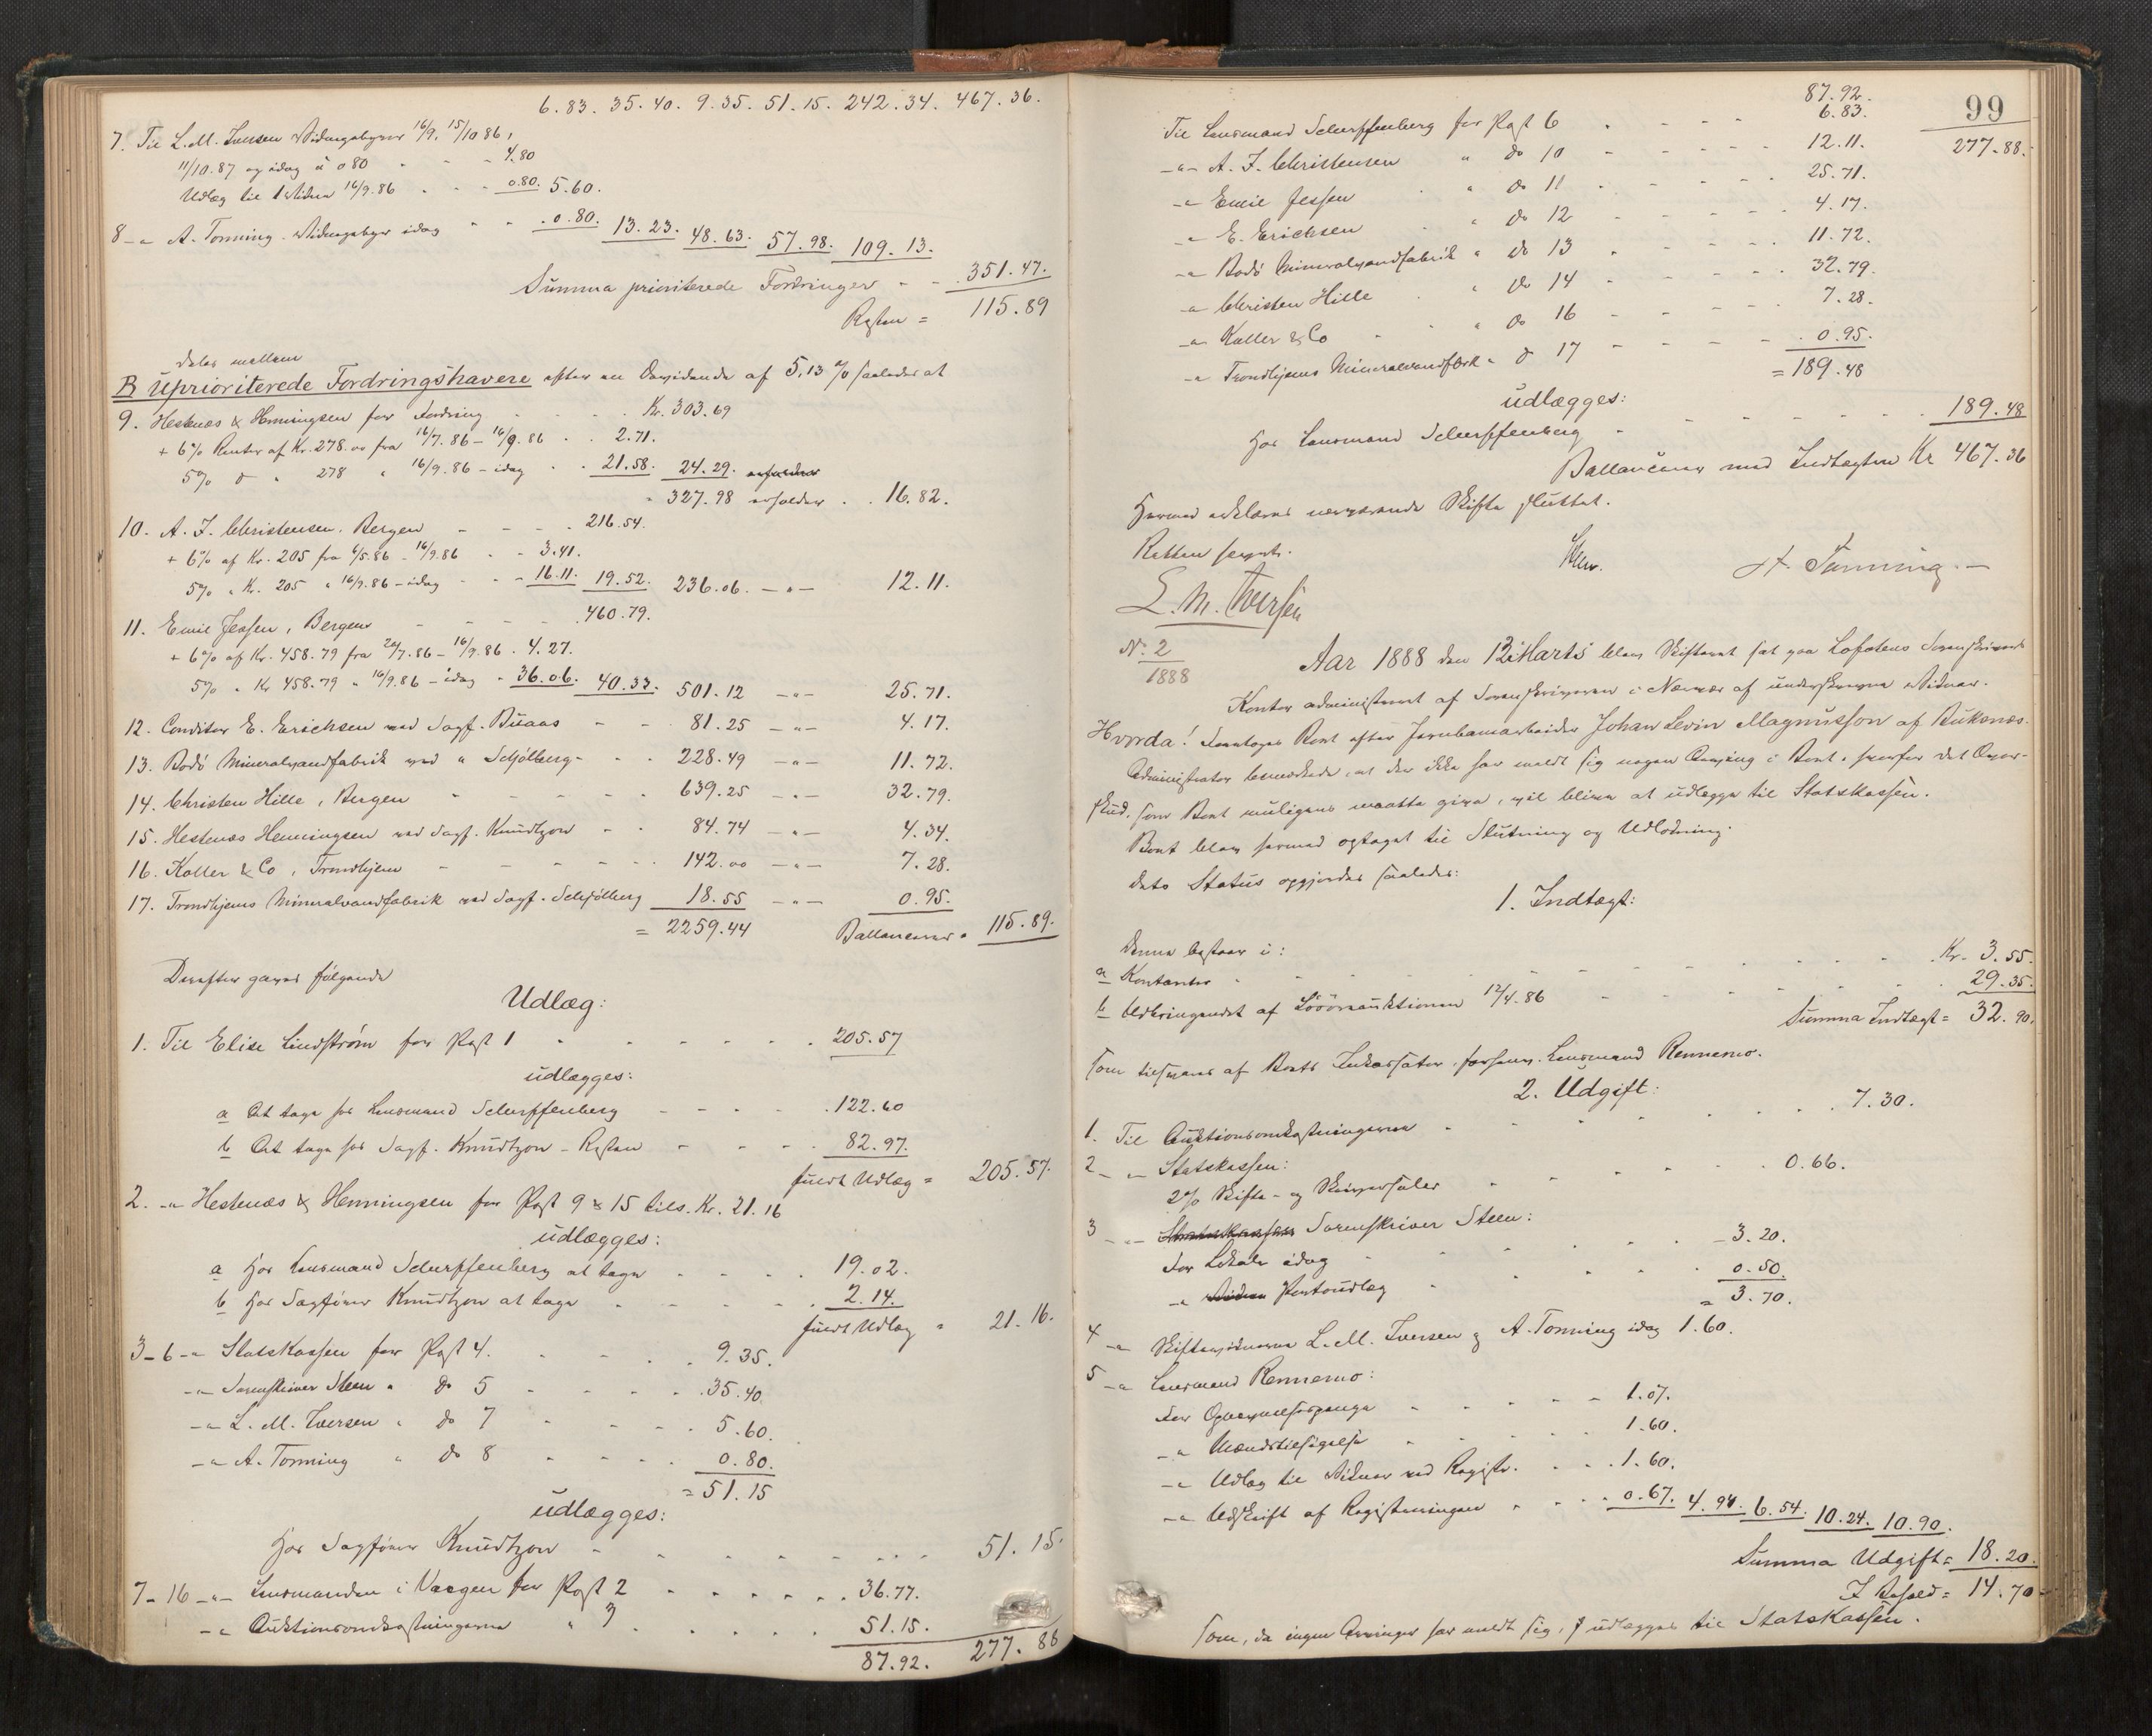 6.83. 35.40. 9.35. 51.15. 242.34. 467.36.
7. Til L. M. Iversen Vidnegebyrer 16/9, 15/10 86,
11/10.87 og idag à 0.80 4.80
Udlæg til 1 Vidne 16/9.86 0.80. 5.60.
8 -"- A. Tonning Vidnegebyr idag 0.80. 13.23. 48.63. 57.98. 109.13.
Summa prioriterede Fordringer 351.47.
Resten = 115.89
deles mellem
B Uprioriterede Fordringshavere efter en Dividende af 5,13 % saaledes at
9. Hestenæs & Henningsen for Fordring Kr. 303.69
+ 6% Renter af Kr. 278.00 fra 16/7.86 - 16/9.86 2.71.
5% do " 278 " 16/9.86 - idag 21.58. 24.29. erholder
" 327.98 erholder 16.82.
10. A. J. Christensen, Bergen 216.54.
+ 6% af Kr. 205 fra 6/5.86 - 16/9.86 3.41.
5% " Kr. 205 " 16/9.86 - idag 16.11. 19.52. 236.06. -"- 12.11.
11. Emil Jessen, Bergen 460.79.
+ 6% af Kr. 458.79 fra 20/7.86 - 16/9.86 4.27.
5% " Kr 458.79 " 16/9.86 - idag 36.06. 40.33. 501.12 -"- 25.71.
12. Conditor E. Erichsen ved Sagf. Buaas 81.25 -"- 4.17.
13. Bodö Mineralvandfabrik ved " Schjölberg 228.49 -"- 11.72.
14. Christen Hille, Bergen 639.25 -"- 32.79.
15. Hestenæs Henningsen ved Sagf. Knudtzon 84.74 -"- 4.34.
16. Koller & Co, Trondhjem 142.00 -"- 7.28.
17. Trondhjems Mineralvandfabrik ved Sagf. Schjölberg 18.55 -"- 0.95.
= 2259.44 Ballancerer = 115.89.
Derefter gjøres følgende
Udlæg:
1. Til Elise Lindstrøm for Post 1 205.57
udlægges:
a At tage hos Lensmand Scharffenberg 122.60
b At tage hos Sagf. Knudtzon - Resten 82.97.
fuldt Udlæg = 205.57.
2. -"- Hestenæs & Henningsen for Post 9 & 15 tils. Kr. 21.16
udlægges:
a Hos Lensmand Scharffenberg at tage 19.02.
b Hos Sagfører Knudtzon at tage 2.14.
fuldt Udlæg = 21.16.
3-6 -"- Statskassen for Post 4. 9.35.
-"- Sorenskriver Steen " do 5 35.40.
-"- L. M. Iversen " do 7 5.60.
-"- A. Tonning " do 8 0.80.
= 51.15
udlægges:
Hos Sagfører Knudtzon 51.15.
7-16 -"- Lensmanden i Vaagen for Post 2 36.77.
-"- Auktionsomkostningerne " 3 51.15.
87.92. 277.88
99
87.92.
Til Lensmand Scharffenberg for Post 6 6.83. 277.88.
-"- A. J. Christensen " do 10 12.11.
-"- Emil Jessen " do 11 25.71.
-"- E. Erichsen " do 12 4.17.
-"- Bodö Mineralvandfabrik " do 13 11.72.
-"- Christen Hille " do 14 32.79.
-"- Koller & Co " do 16 7.28.
-"- Trondhjems Mineralvandfbrk " do 17 0.95.
= 189.48
udlægges:
Hos Lensmand Scharffenberg 189.48
Ballancerer med Indtægten Kr 467.36
Hermed erklæres nærværende Skifte sluttet.
Retten hævet.
Steen. A. Tonning.
L. M. Iversen
No. 2
1888
Aar 1888 den 12 Marts blev Skifteret sat paa Lofotens Sorenskriver
Kontor administreret af Sorenskriveren i Nærvær af underskrevne Vidner.
Hvorda! Foretoges Boet efter Jernbanearbeider Johan Levin Magnusson af Buksnæs.
Administrator bemærkede, at der ikke har meldt sig nogen Arving i Boet, hvorfor det Over-
skud, som Boet muligens maatte give, vil blive at udlægge til Statskassen.
Boet blev hermed optaget til Slutning og Udlodning.
dets Status opgjordes saaledes:
1. Indtægt:
Denne bestaar i:
a Kontanter Kr. 3.55.
b Udbringendet af Löösöreauktionen 12/4.86 29.35.
Summa Indtægt = 32.90.
som tilsvares af Boets Inkassator, forhenv. Lensmand Rennemo.
2. Udgift:
1. Til Auktionsomkostningerne 7.30.
2 -"- Statskassen:
2% Skifte- og Skriversaler 0.66.
3 -"- Statskassen Sorenskriver Steen:
For Lokale idag 3.20.
-"- Vidner Portoudlæg 0.50.
= 3.70.
4 -"- Skiftevidnerne L. M. Iversen & A. Tonning idag 1.60.
5 -"- Lensmand Rennemo:
For Opnævnelsespenge 1.07.
-"- Mændstilsigelse 1.60.
-"- Udlæg til Vidner ved Registr. 1.60.
-"- Udskrift af Registreringen 0.67. 4.94. 6.54. 10.24. 10.90.
Summa Udgift = 18.20.
I Behold = 14.70
som, da ingen Arvinger har meldt sig, udlægges til Statskassen.